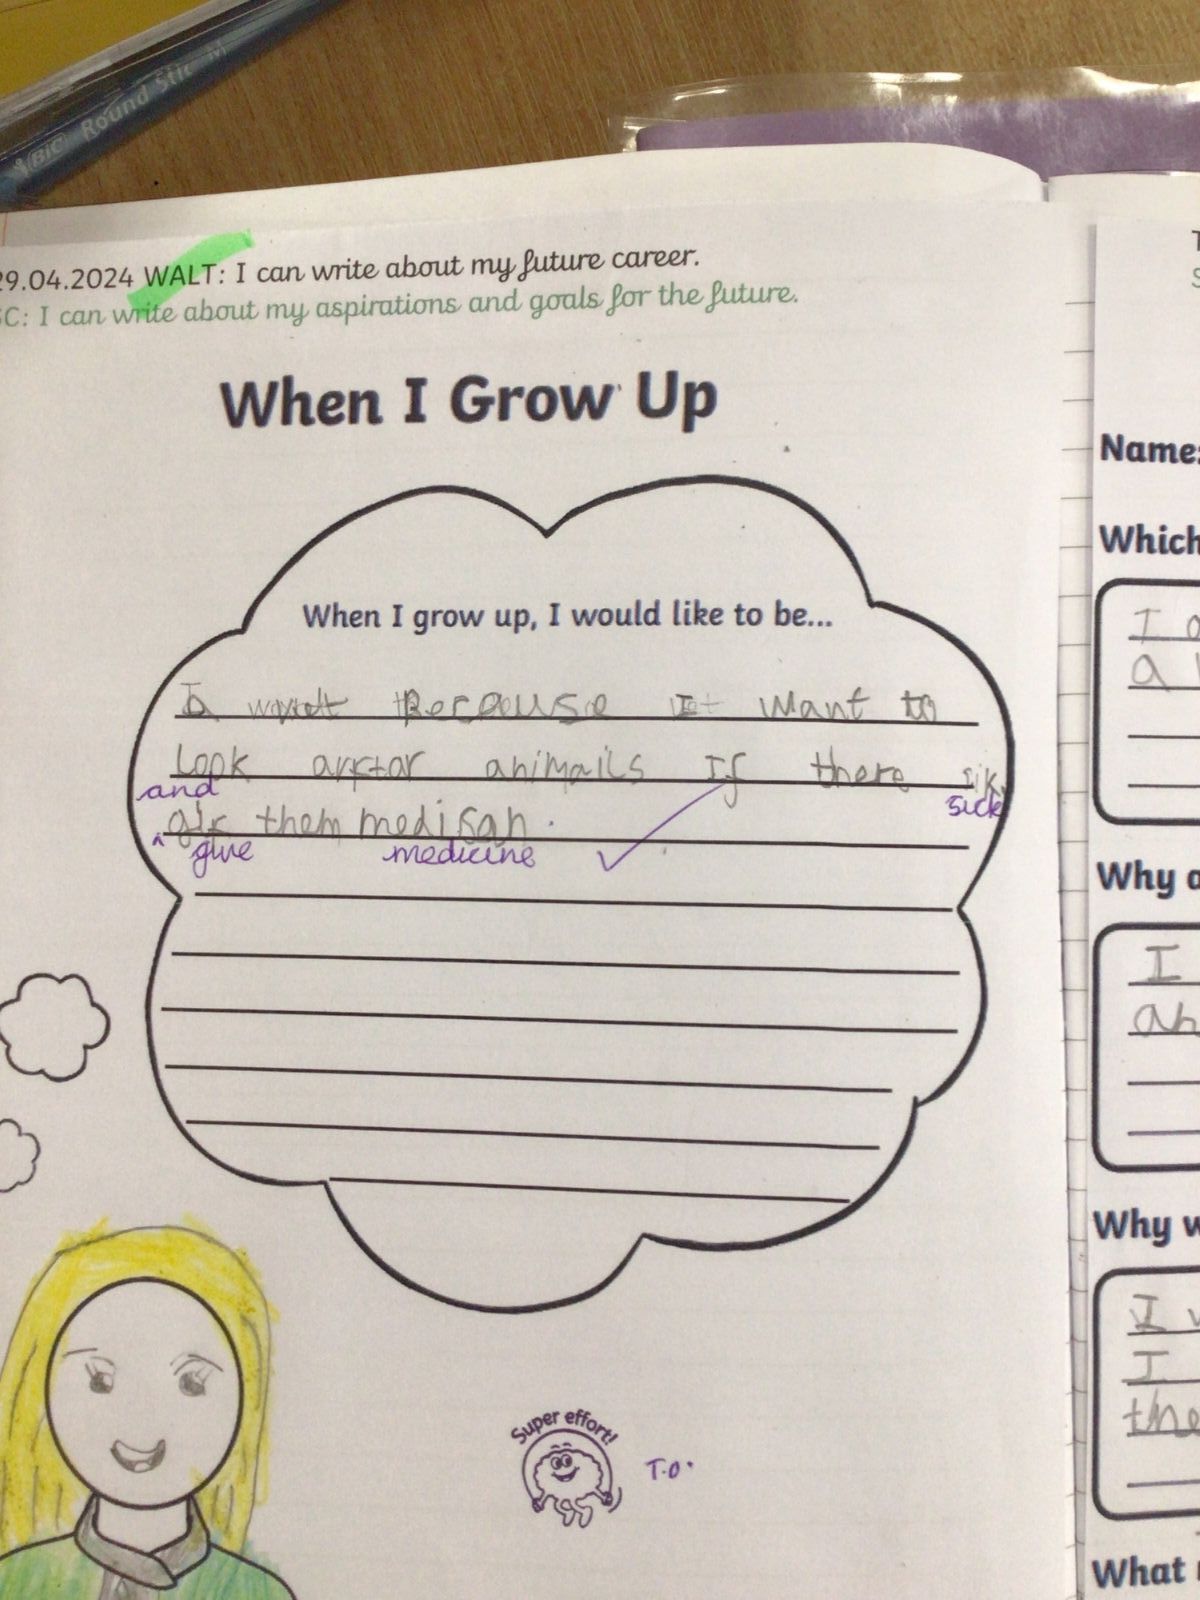 BIC Round Stic M
29.04.2024 WALT: I can write about my future career.
SC: I can write about my aspirations and goals for the future.
When I Grow Up
When I grow up, I would like to be...
a Because I want to
Look animails If there sik
and
sick
them medisan.
give medicine
Super effort!
T.O.
Name:
Which
I
a
Why a
I
an
Why w
I w
I
the
What